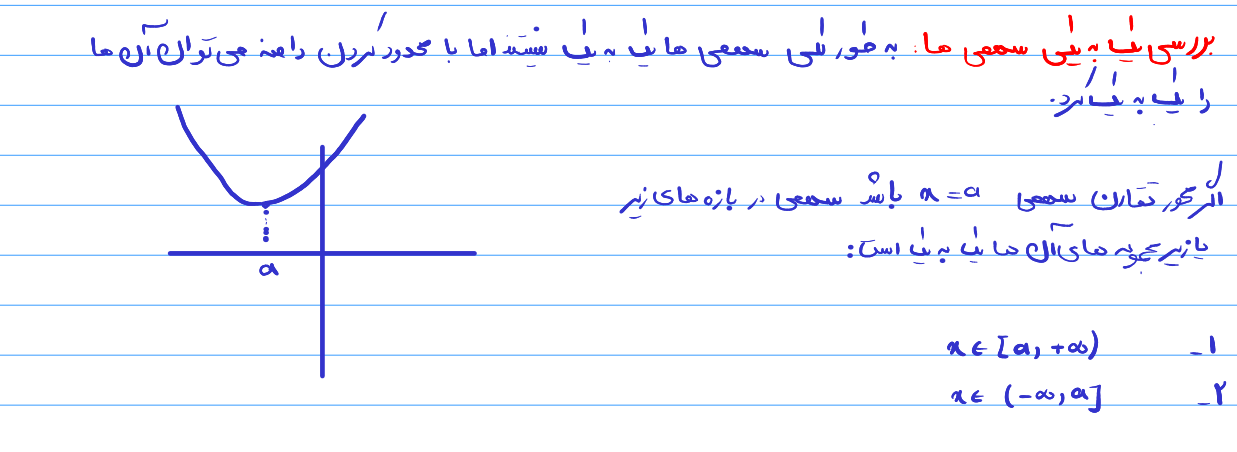 بررسی یک به یکی سهمی ها: به طور کلی سهمی ها یک به یک نیستند اما با محدود کردن دامنه می توان آن ها
را یک به یک کرد.
اگر محور تقارن سهمی x=a باشد سهمی در بازه های زیر
یا زیر مجموعه های آن ها یک به یک است:
a
۱- x∈[a, +∞)
۲- x∈(-∞, a]